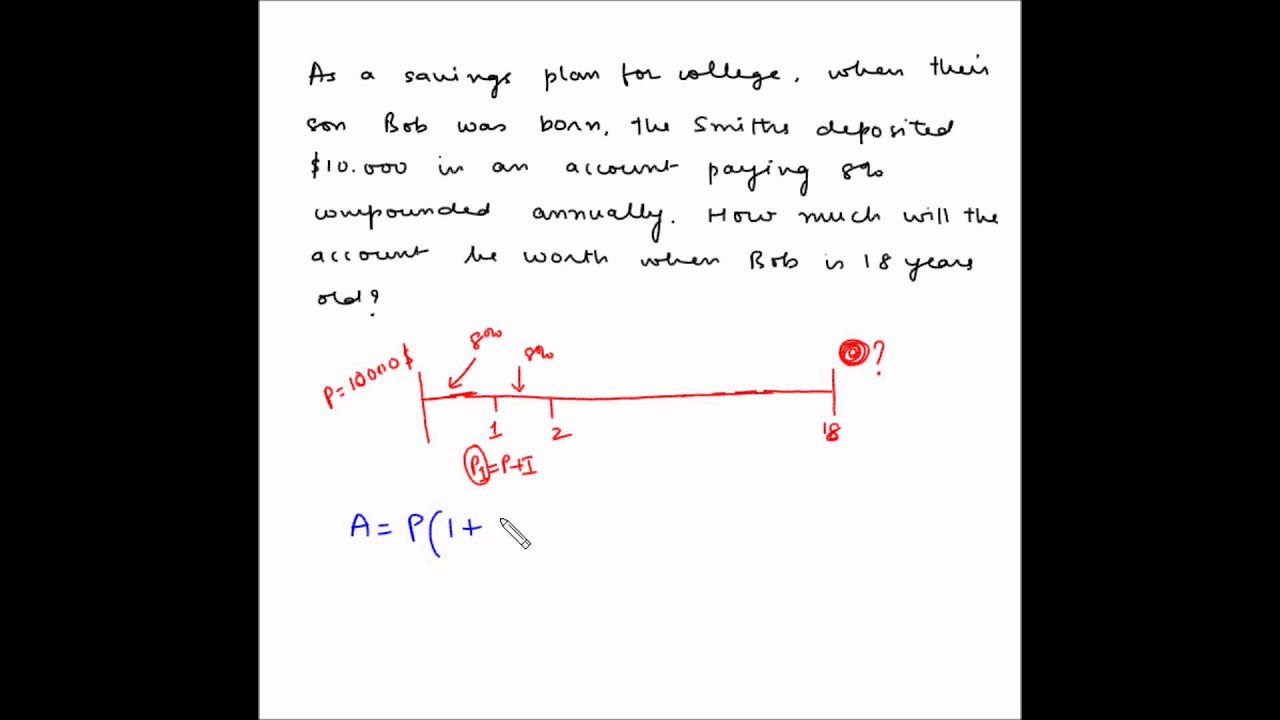 As a savings plan for college, when their
son Bob was born, the Smiths deposited
$10.000 in an account paying 8%
compounded annually. How much will the
account be worth when Bob is 18 years
old?
8%
8%
P=10000$
?
1
2
18
P1=P+I
A= P(1+